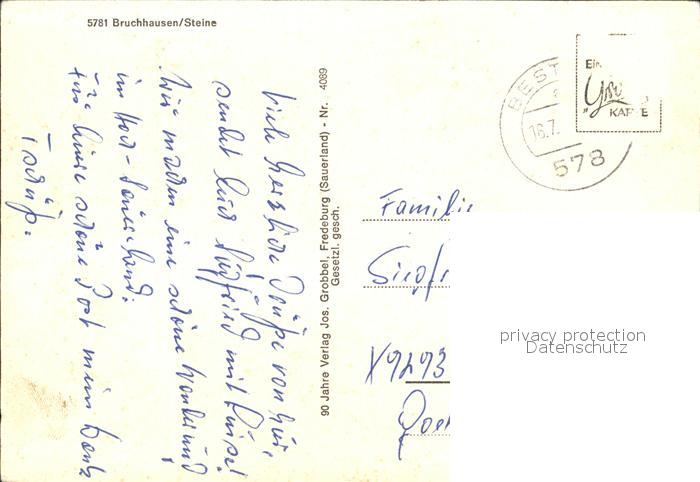 5781 Bruchhausen/Steine
Viele herzliche Grüße von hier,
sendet Euch Siegfried mit Luise!
Wir machen eine schöne
im Hoch-Sauerland.
Für Eure schöne Post mein Dank
Tschüß.
90 Jahre Verlag Jos. Grobbel, Fredeburg (Sauerland) - Nr. 4089
Gesetzl. gesch.
BEST
16.7.
578
Ein
KARTE
Familie
Siegfr
X9293
privacy protection
Datenschutz